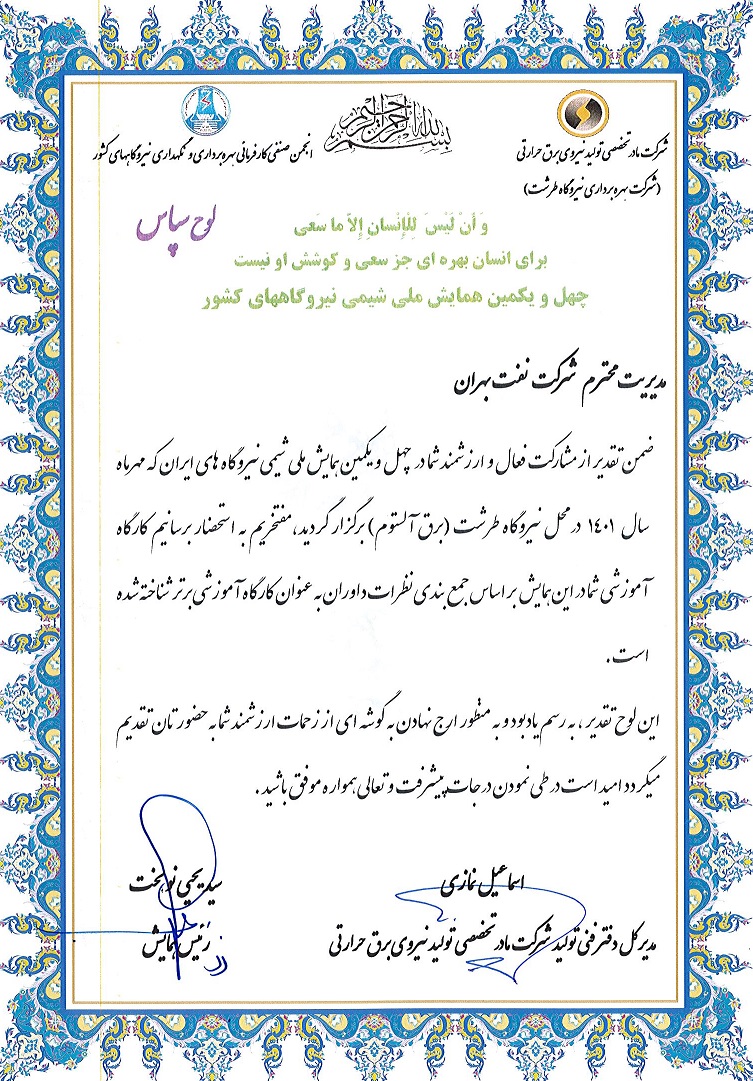 بسم الله الرحمن الرحیم
شرکت مادر تخصصی تولید نیروی برق حرارتی
(شرکت بهره برداری نیروگاه طرشت)
انجمن صنفی کارفرمائی بهره برداری و نگهداری نیروگاههای کشور
لوح سپاس
وَ أَنْ لَیْسَ لِلْإِنْسانِ إِلاَّ ما سَعی
برای انسان بهره ای جز سعی و کوشش او نیست
چهل و یکمین همایش ملی شیمی نیروگاههای کشور
مدیریت محترم شرکت نفت بهران
ضمن تقدیر از مشارکت فعال و ارزشمند شما در چهل و یکمین همایش ملی شیمی نیروگاه های ایران که مهرماه
سال ۱۴۰۱ در محل نیروگاه طرشت (برق آلستوم) برگزار گردید، مفتخریم به استحضار برسانیم کارگاه
آموزشی شما در این همایش بر اساس جمع بندی نظرات داوران به عنوان کارگاه آموزشی برتر شناخته شده
است.
این لوح تقدیر، به رسم یادبود و به منظور ارج نهادن به گوشه ای از زحمات ارزشمند شما به حضورتان تقدیم
میگردد امید است در طی نمودن درجات پیشرفت و تعالی همواره موفق باشید.
اسماعیل نمازی
مدیر کل دفتر فنی تولید شرکت مادر تخصصی تولید نیروی برق حرارتی
سید یحیی نوبخت
رئیس همایش